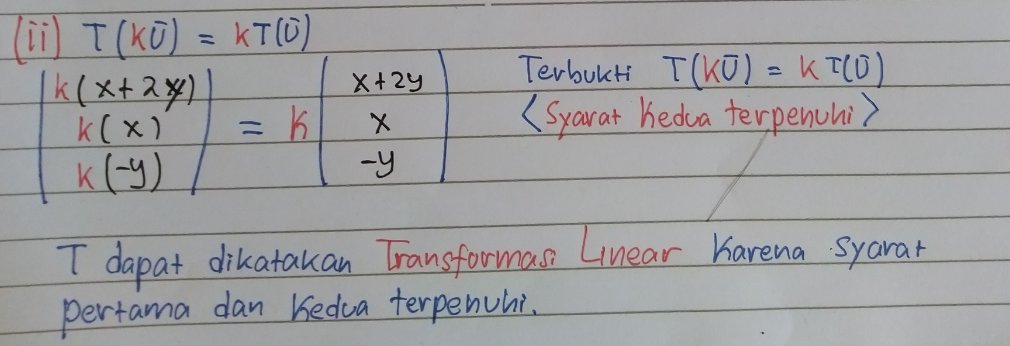 (ii) T(kū) = kT(ū)
| k(x+2y) | = k | x+2y |
| k(x) | | x |
| k(-y) | | -y |
Terbukti T(kū) = kT(ū)
<Syarat kedua terpenuhi>
T dapat dikatakan Transformasi Linear karena syarat
pertama dan kedua terpenuhi.